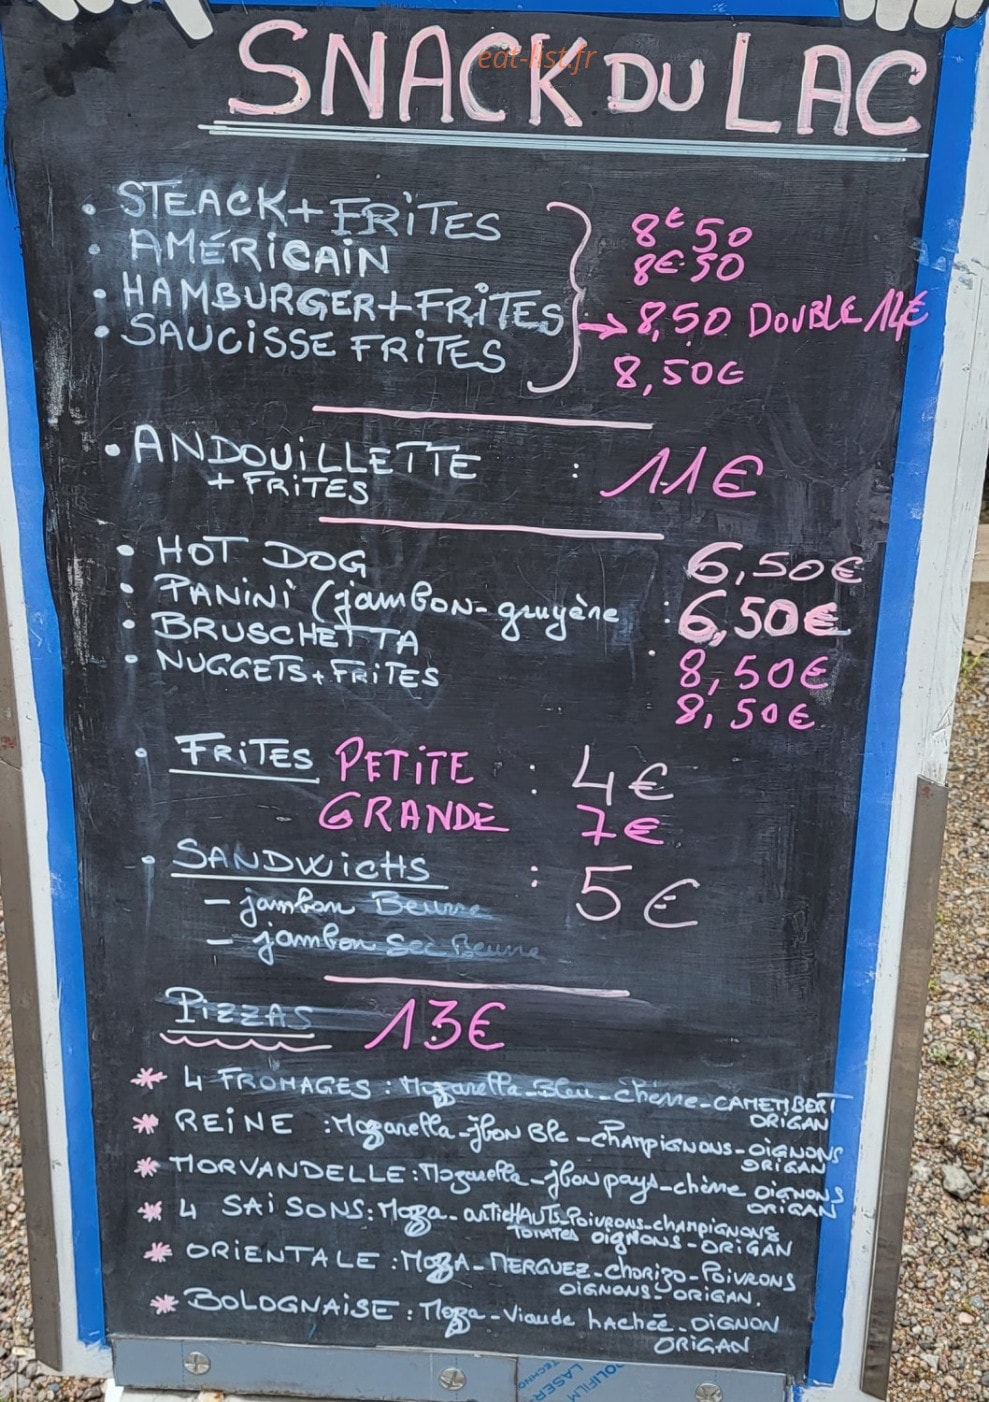 SNACK DU LAC
eat-list.fr
• STEACK + FRITES 8€50
• AMÉRICAIN 8€50
• HAMBURGER + FRITES → 8,50 DOUBLE 12€
• SAUCISSE FRITES 8,50€
• ANDOUILLETTE : 11€
+ FRITES
• HOT DOG 6,50€
• PANINI (jambon-gruyère : 6,50€
• BRUSCHETTA 8,50€
• NUGGETS + FRITES 8,50€
• FRITES PETITE : 4€
GRANDE 7€
• SANDWICHS : 5€
- jambon Beurre
- jambon Sec Beurre
PIZZAS 13€
* 4 FROMAGES : Mozarella - Bleu - chèvre - CAMEMBERT
ORIGAN
* REINE : Mozarella - jbon Blc - CHAMPIGNONS - OIGNONS
ORIGAN
* MORVANDELLE : Mozarella - jbon pays - chèvre OIGNONS
ORIGAN
* 4 SAISONS : Moza - artichAUTS - POIVRONS - CHAMPIGNONS
TOMATES OIGNONS - ORIGAN
* ORIENTALE : MOZA - MERGUEZ - Chorizo - POIVRONS
OIGNONS - ORIGAN.
* BOLOGNAISE : Moza - Viande hachée - OIGNON
ORIGAN
POLIFILM
LASER
TECHNO